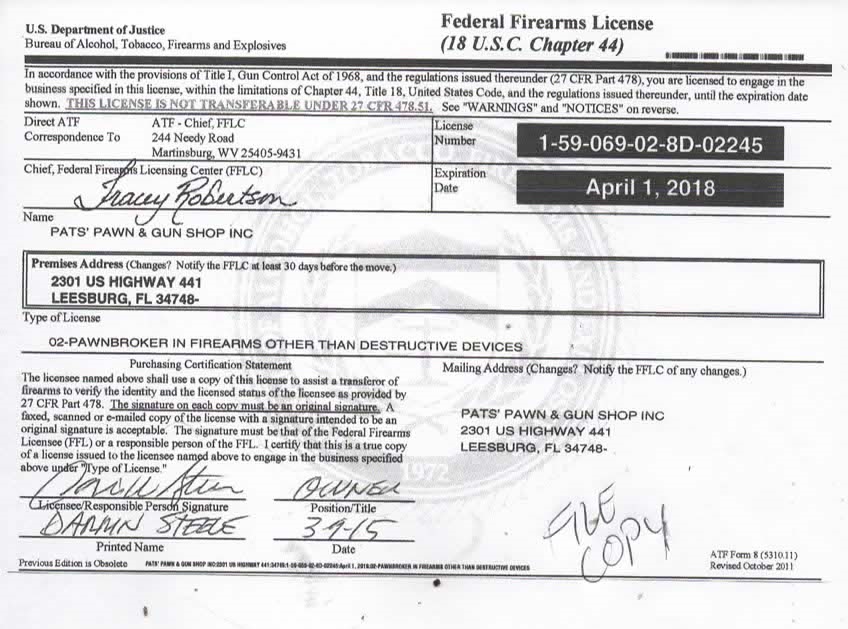 U.S. Department of Justice
Bureau of Alcohol, Tobacco, Firearms and Explosives
Federal Firearms License
(18 U.S.C. Chapter 44)
In accordance with the provisions of Title I, Gun Control Act of 1968, and the regulations issued thereunder (27 CFR Part 478), you are licensed to engage in the
business specified in this license, within the limitations of Chapter 44, Title 18, United States Code, and the regulations issued thereunder, until the expiration date
shown. THIS LICENSE IS NOT TRANSFERABLE UNDER 27 CFR 478.51. See "WARNINGS" and "NOTICES" on reverse.
Direct ATF
Correspondence To
ATF - Chief, FFLC
244 Needy Road
Martinsburg, WV 25405-9431
License
Number
1-59-069-02-8D-02245
Chief, Federal Firearms Licensing Center (FFLC)
Tracey Robertson
Expiration
Date
April 1, 2018
Name
PATS' PAWN & GUN SHOP INC
Premises Address (Changes? Notify the FFLC at least 30 days before the move.)
2301 US HIGHWAY 441
LEESBURG, FL 34748-
Type of License
02-PAWNBROKER IN FIREARMS OTHER THAN DESTRUCTIVE DEVICES
Purchasing Certification Statement
The licensee named above shall use a copy of this license to assist a transferor of
firearms to verify the identity and the licensed status of the licensee as provided by
27 CFR Part 478. The signature on each copy must be an original signature. A
faxed, scanned or e-mailed copy of the license with a signature intended to be an
original signature is acceptable. The signature must be that of the Federal Firearms
Licensee (FFL) or a responsible person of the FFL. I certify that this is a true copy
of a license issued to the licensee named above to engage in the business specified
above under "Type of License."
Mailing Address (Changes? Notify the FFLC of any changes.)
PATS' PAWN & GUN SHOP INC
2301 US HIGHWAY 441
LEESBURG, FL 34748-
1972
OWNER
Licensee/Responsible Person Signature
Position/Title
STEELE
3-9-15
Printed Name
Date
FILE
COPY
ATF Form 8 (5310.11)
Revised October 2011
Previous Edition is Obsolete
PATS' PAWN & GUN SHOP INC:2301 US HIGHWAY 441:34748:1-59-069-02-8D-02245:April 1, 2018:02-PAWNBROKER IN FIREARMS OTHER THAN DESTRUCTIVE DEVICES